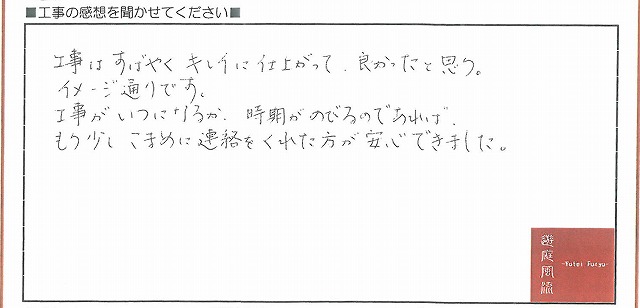 ■工事の感想を聞かせてください■
工事はすばやくキレイに仕上がって、良かったと思う。
イメージ通りです。
工事がいつになるか、時期がのびるのであれば、
もう少しこまめに連絡をくれた方が安心できました。
遊庭風流
-Yutei Furyu-